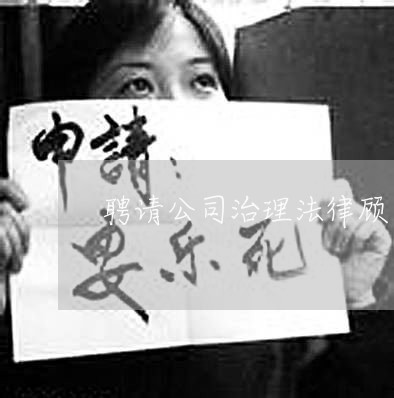 申請：
聘请公司治理法律顾
安乐死